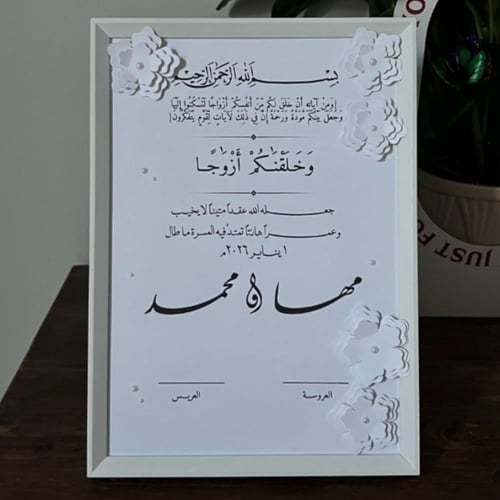 بسم الله الرحمن الرحيم
{وَمِنْ آيَاتِهِ أَنْ خَلَقَ لَكُم مِّنْ أَنفُسِكُمْ أَزْوَاجًا لِّتَسْكُنُوا إِلَيْهَا
وَجَعَلَ بَيْنَكُم مَّوَدَّةً وَرَحْمَةً إِنَّ فِي ذَٰلِكَ لَآيَاتٍ لِّقَوْمٍ يَتَفَكَّرُونَ}
وَخَلَقْنَاكُمْ أَزْوَاجًا
جعله الله عقداً متيناً لا يخيب
وعمراً هانئاً تمتد فيه المسرة ما طال
١ يناير ٢٠٢٦م
مها و محمد
العروسة
العريس
JUST FO